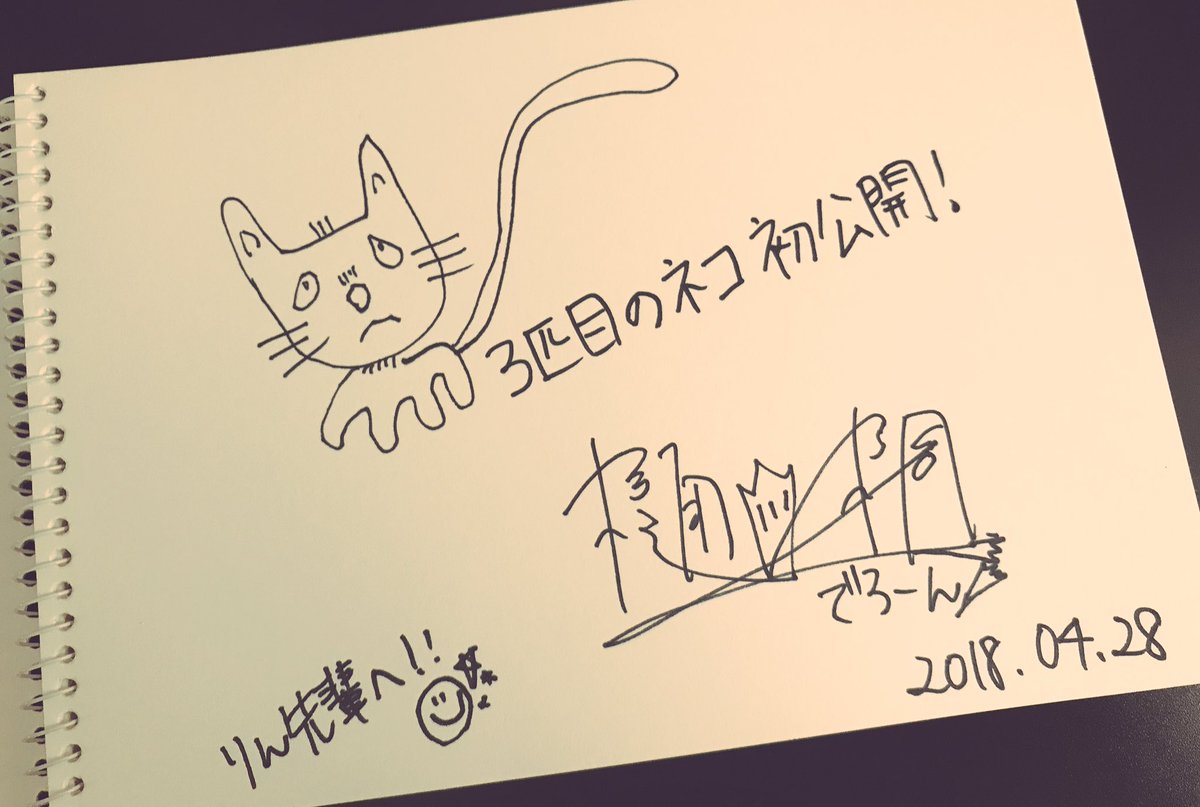 3匹目のネコ初公開!
でろーん
2018.04.28
りん先輩へ!!